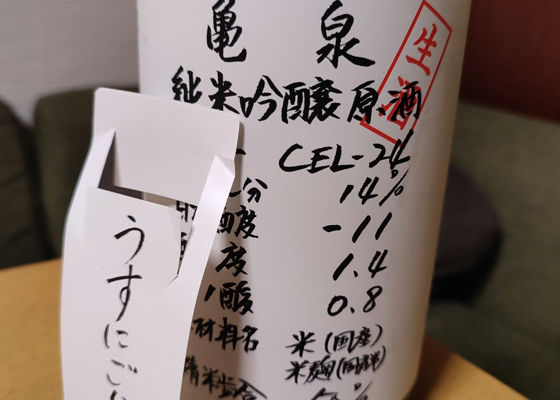 亀泉
生酒
純米吟醸原酒
CEL-24
分 14%
酒度 -11
度 1.4
酸 0.8
材料名 米(国産)
米麹(国産米)
精米歩合
うすにご